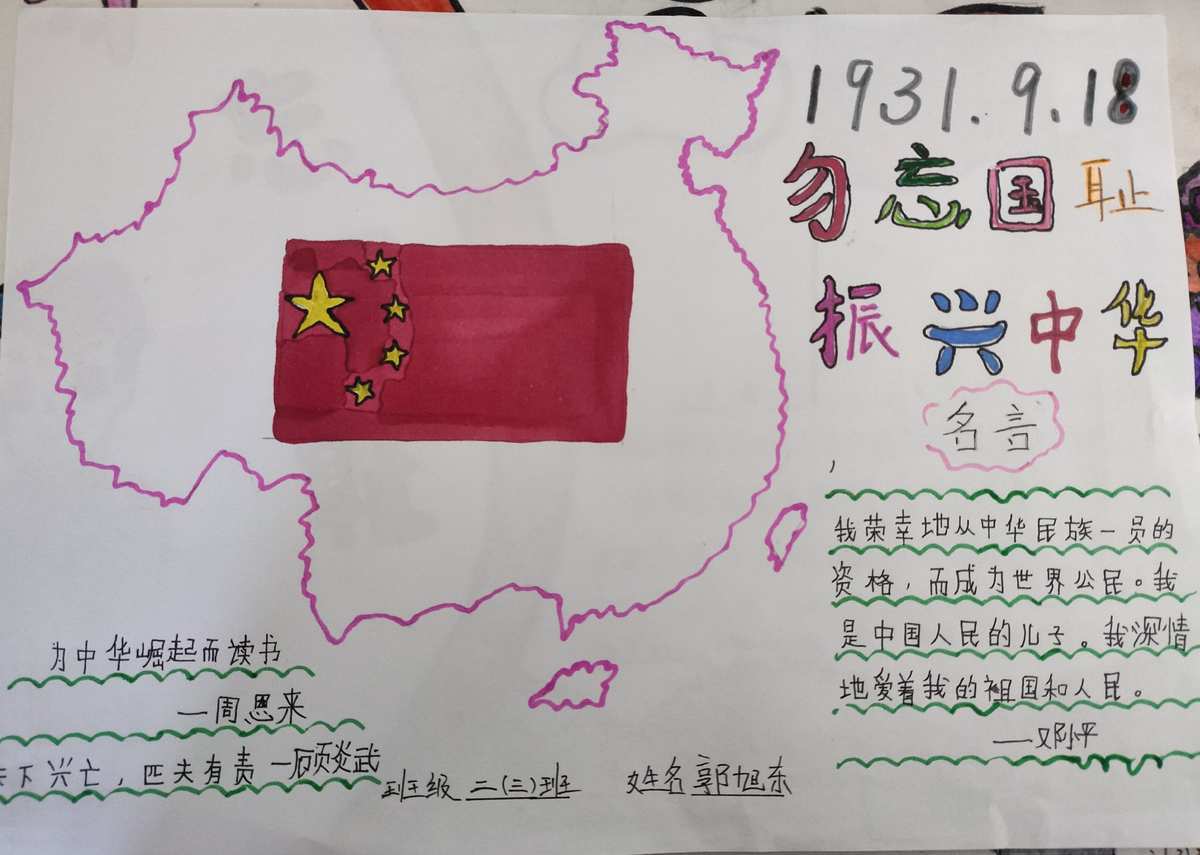 1931.9.18
勿忘国耻
振兴中华
名言
我荣幸地从中华民族一员的
资格，而成为世界公民。我
是中国人民的儿子。我深情
地爱着我的祖国和人民。
——邓小平
为中华崛起而读书
—周恩来
天下兴亡，匹夫有责—顾炎武
班级 二(三)班 姓名 郭旭东